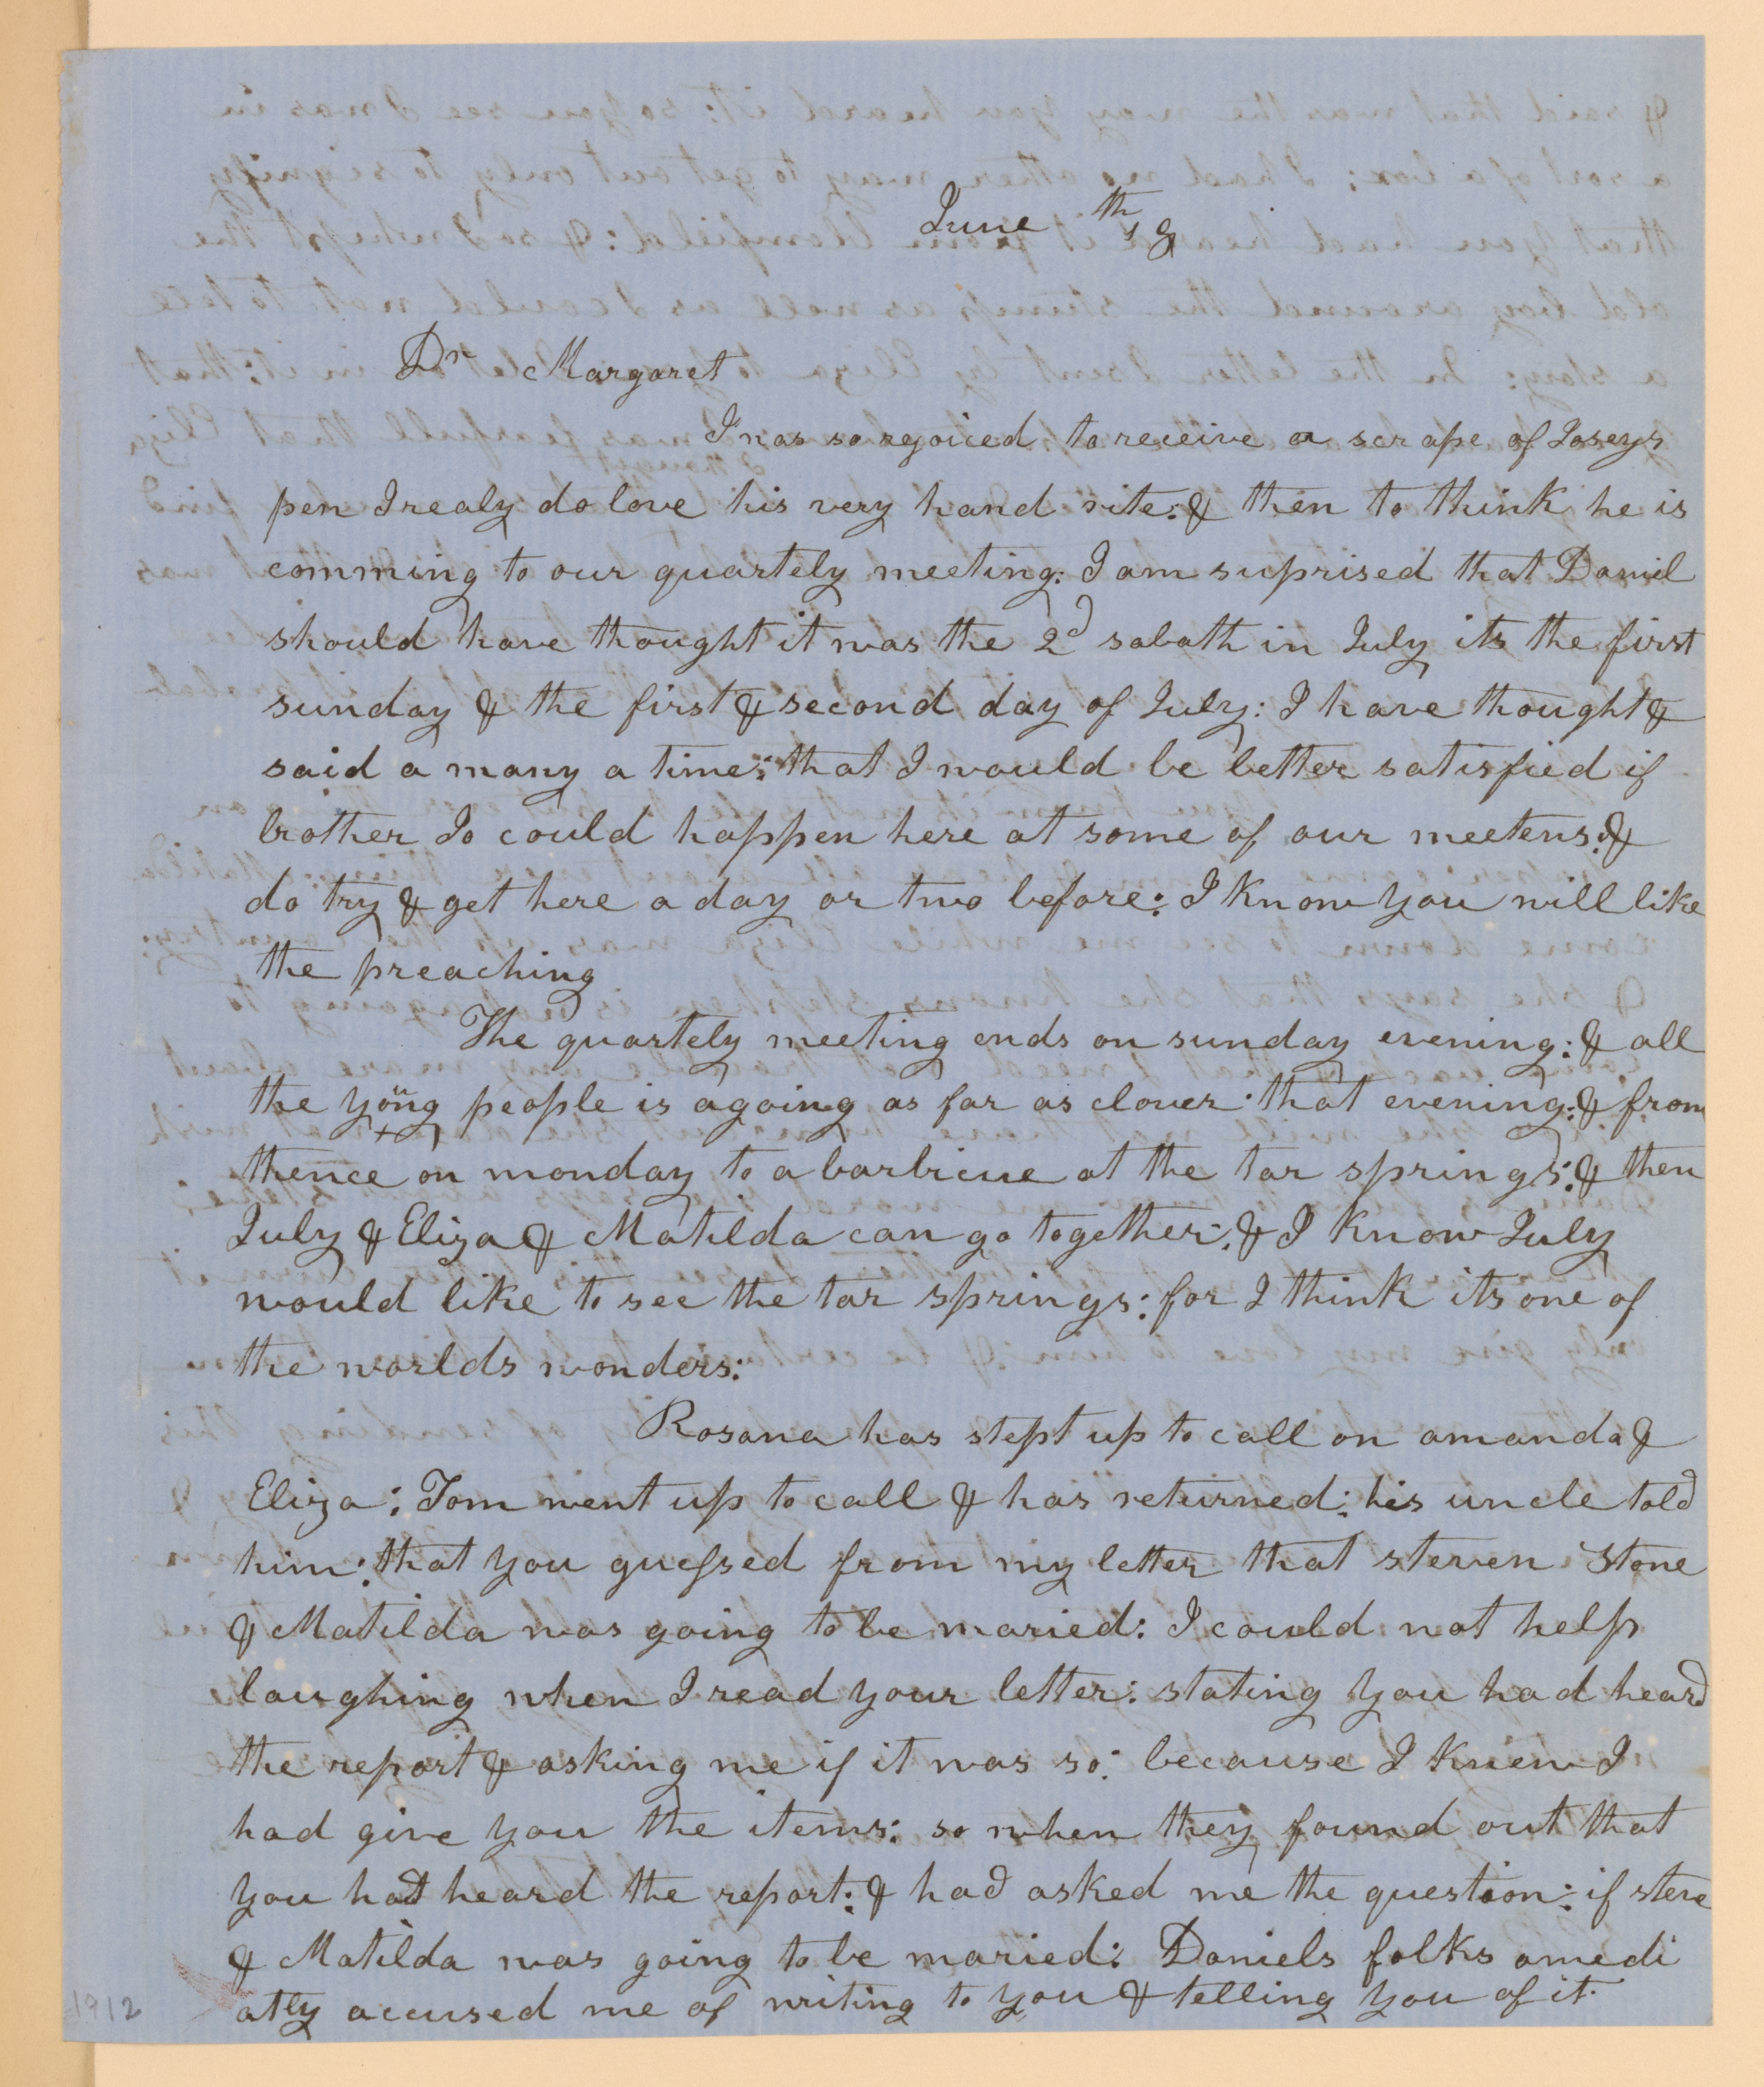 June 18th
Dr Margaret
I was so regoiced to receive a scrape of Joseys
pen I realy do love his very hand rite: & then to think he is
comming to our quartely meeting: I am suprised that Daniel
should have thought it was the 2d sabath in July its the first
sunday & the first & second day of July: I have thought &
said a many a time: that I would be better satisfied if
brother Jo could happen here at some of our meetens: &
do try & get here a day or two before: I know you will like
the preaching
The quartely meeting ends on sunday evening: & all
the young people is agoing as far as clover that evening: & from
thence on monday to a barbicue at the tar springs: & then
July & Eliza & Matilda can go together: & I know July
would like to see the tar springs: for I think its one of
the worlds wonders:
Rosana has stept up to call on amanda &
Eliza: Tom went up to call & has returned: his uncle told
him: that you guessed from my letter that steven Stone
& Matilda was going to be maried: I could not help
laughing when I read your letter: stating you had heard
the report & asking me if it was so: because I knew I
had give you the items: so when they found out that
you had heard the report: & had asked me the question: if steve
& Matilda was going to be maried: Daniels folks amedi
atly accused me of writing to you & telling you of it
1912